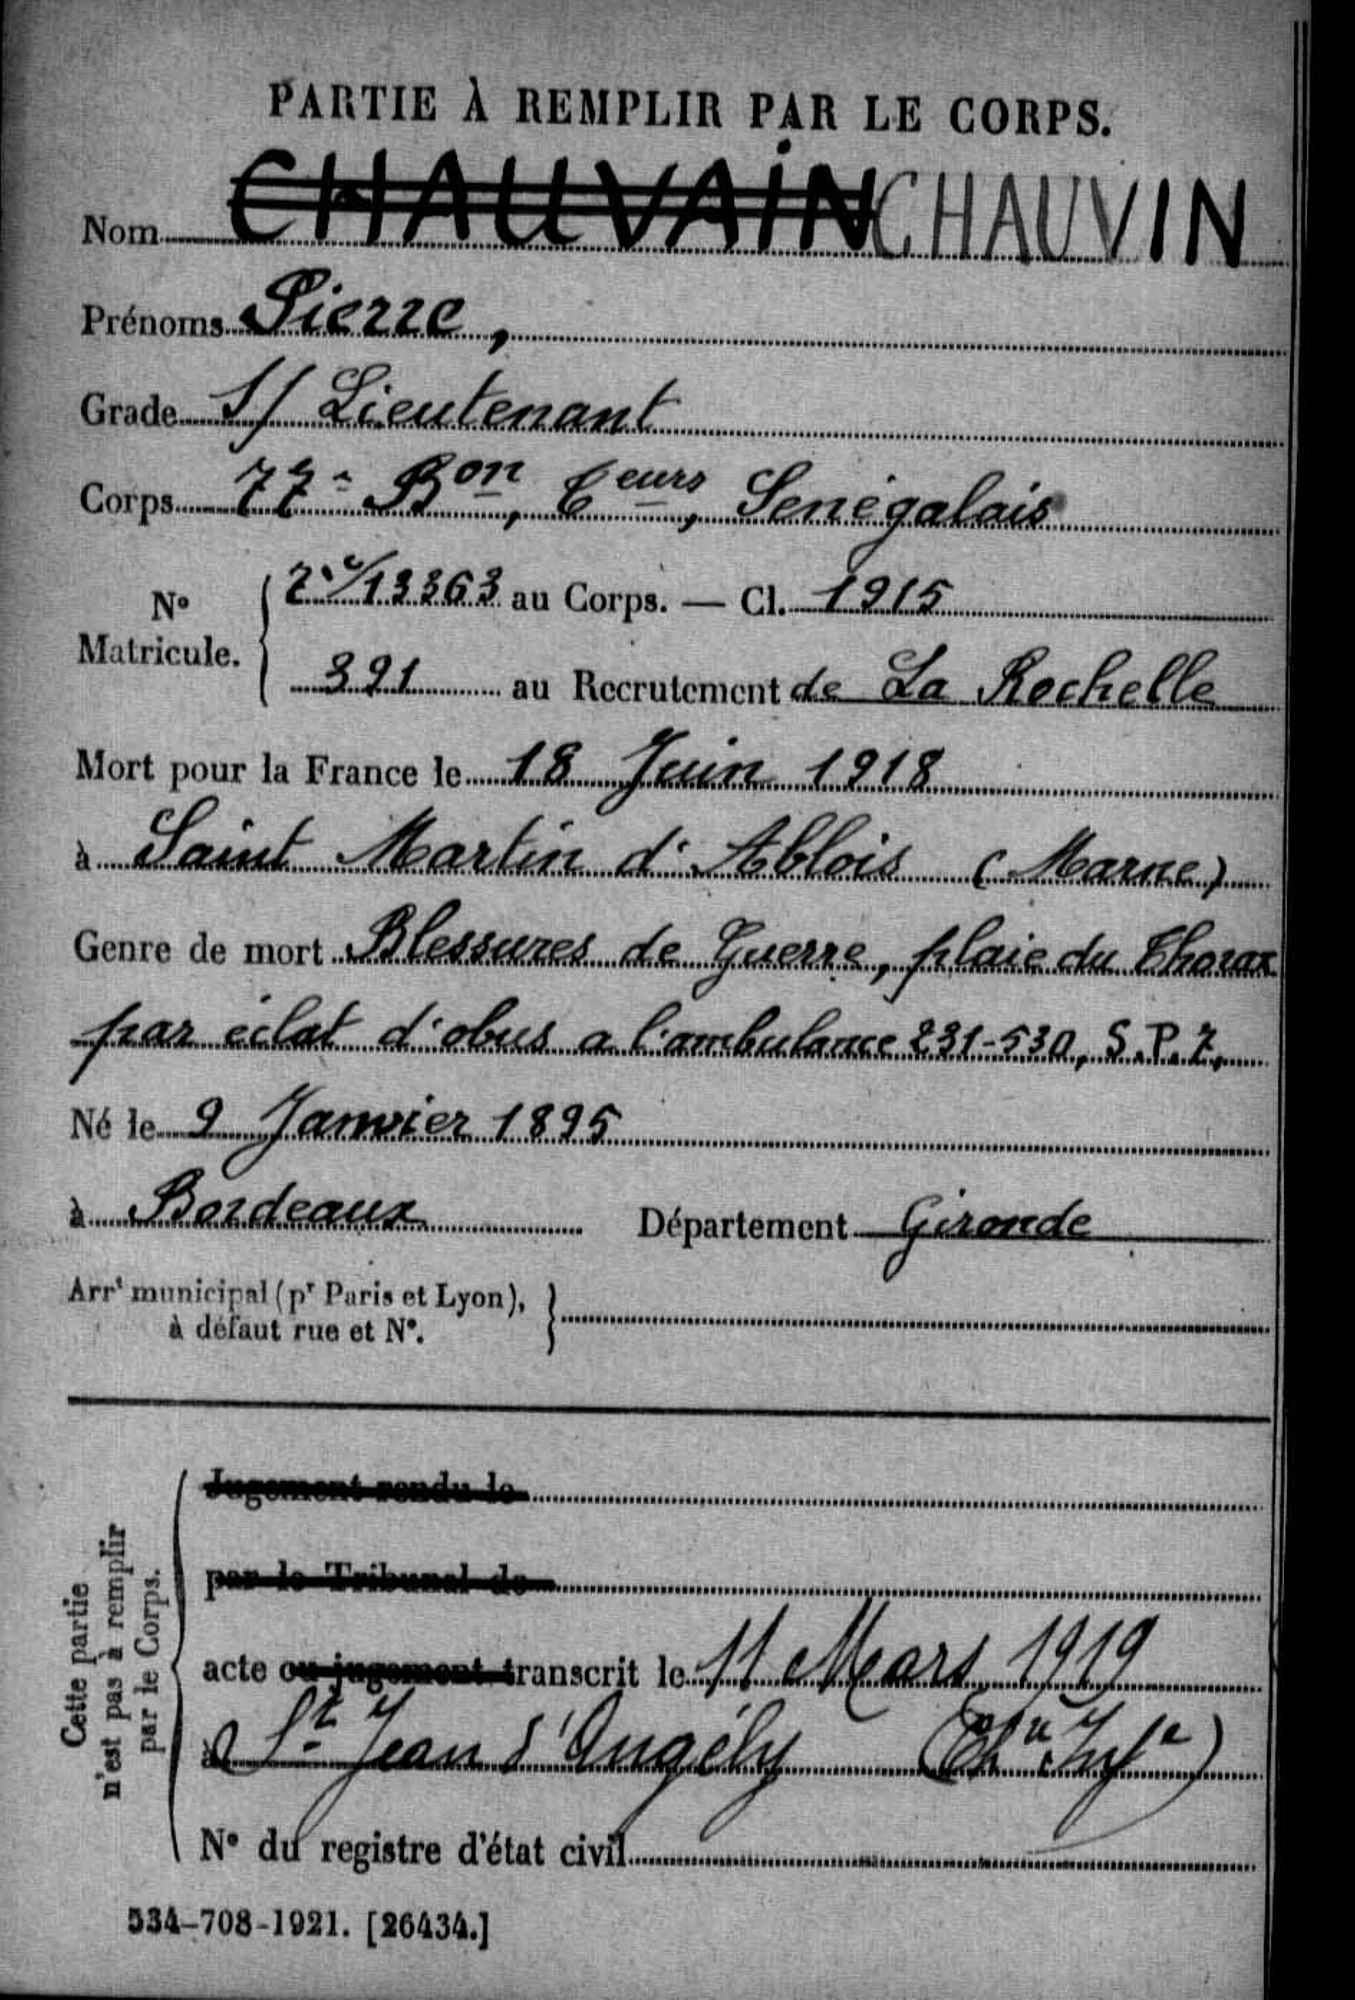 PARTIE À REMPLIR PAR LE CORPS.
Nom CHAUVAIN CHAUVIN
Prénoms Pierre,
Grade S/ Lieutenant
Corps 77e Bon, Ceurs, Senégalais
No Matricule. 7e/13363 au Corps. — Cl. 1915
391 au Recrutement de La Rochelle
Mort pour la France le 18 Juin 1918
à Saint Martin d'Ablois (Marne)
Genre de mort Blessures de Guerre, plaie du Thorax
par éclat d'obus a l'ambulance 231-530, S.P.7,
Né le 9 Janvier 1895
à Bordeaux Département Gironde
Arrt municipal (pr Paris et Lyon),
à défaut rue et No.
Cette partie
n'est pas à remplir
par le Corps.
Jugement rendu le
par le Tribunal de
acte ou jugement transcrit le 11 Mars 1919
à St Jean d'Angély (Chte Infre)
No du registre d'état civil
534-708-1921. [26434.]